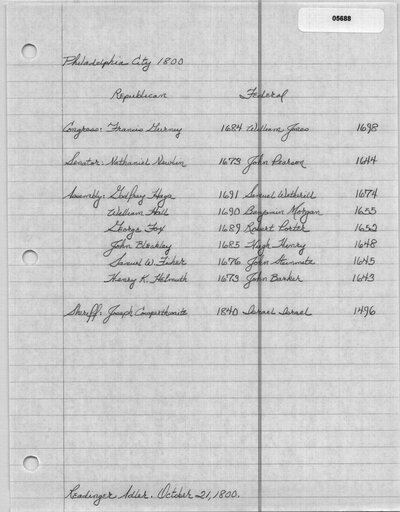 05688
Philadelphia City 1800
Republican Federal
Congress: Francis Gurney 1684 William Jones 1698
Senator: Nathaniel Newlin 1673 John Pearson 1644
Assembly: Godfrey Haga 1691 Samuel Wetherill 1674
William Hall 1690 Benjamin Morgan 1655
George Fox 1689 Robert Porter 1652
John Bleakley 1685 Hugh Henry 1648
Samuel W. Fisher 1676 John Steinmetz 1645
Henry K. Helmuth 1673 John Barker 1643
Sheriff: Joseph Cowperthwaite 1840 Israel Israel 1496
Readinger Adler. October 21, 1800.